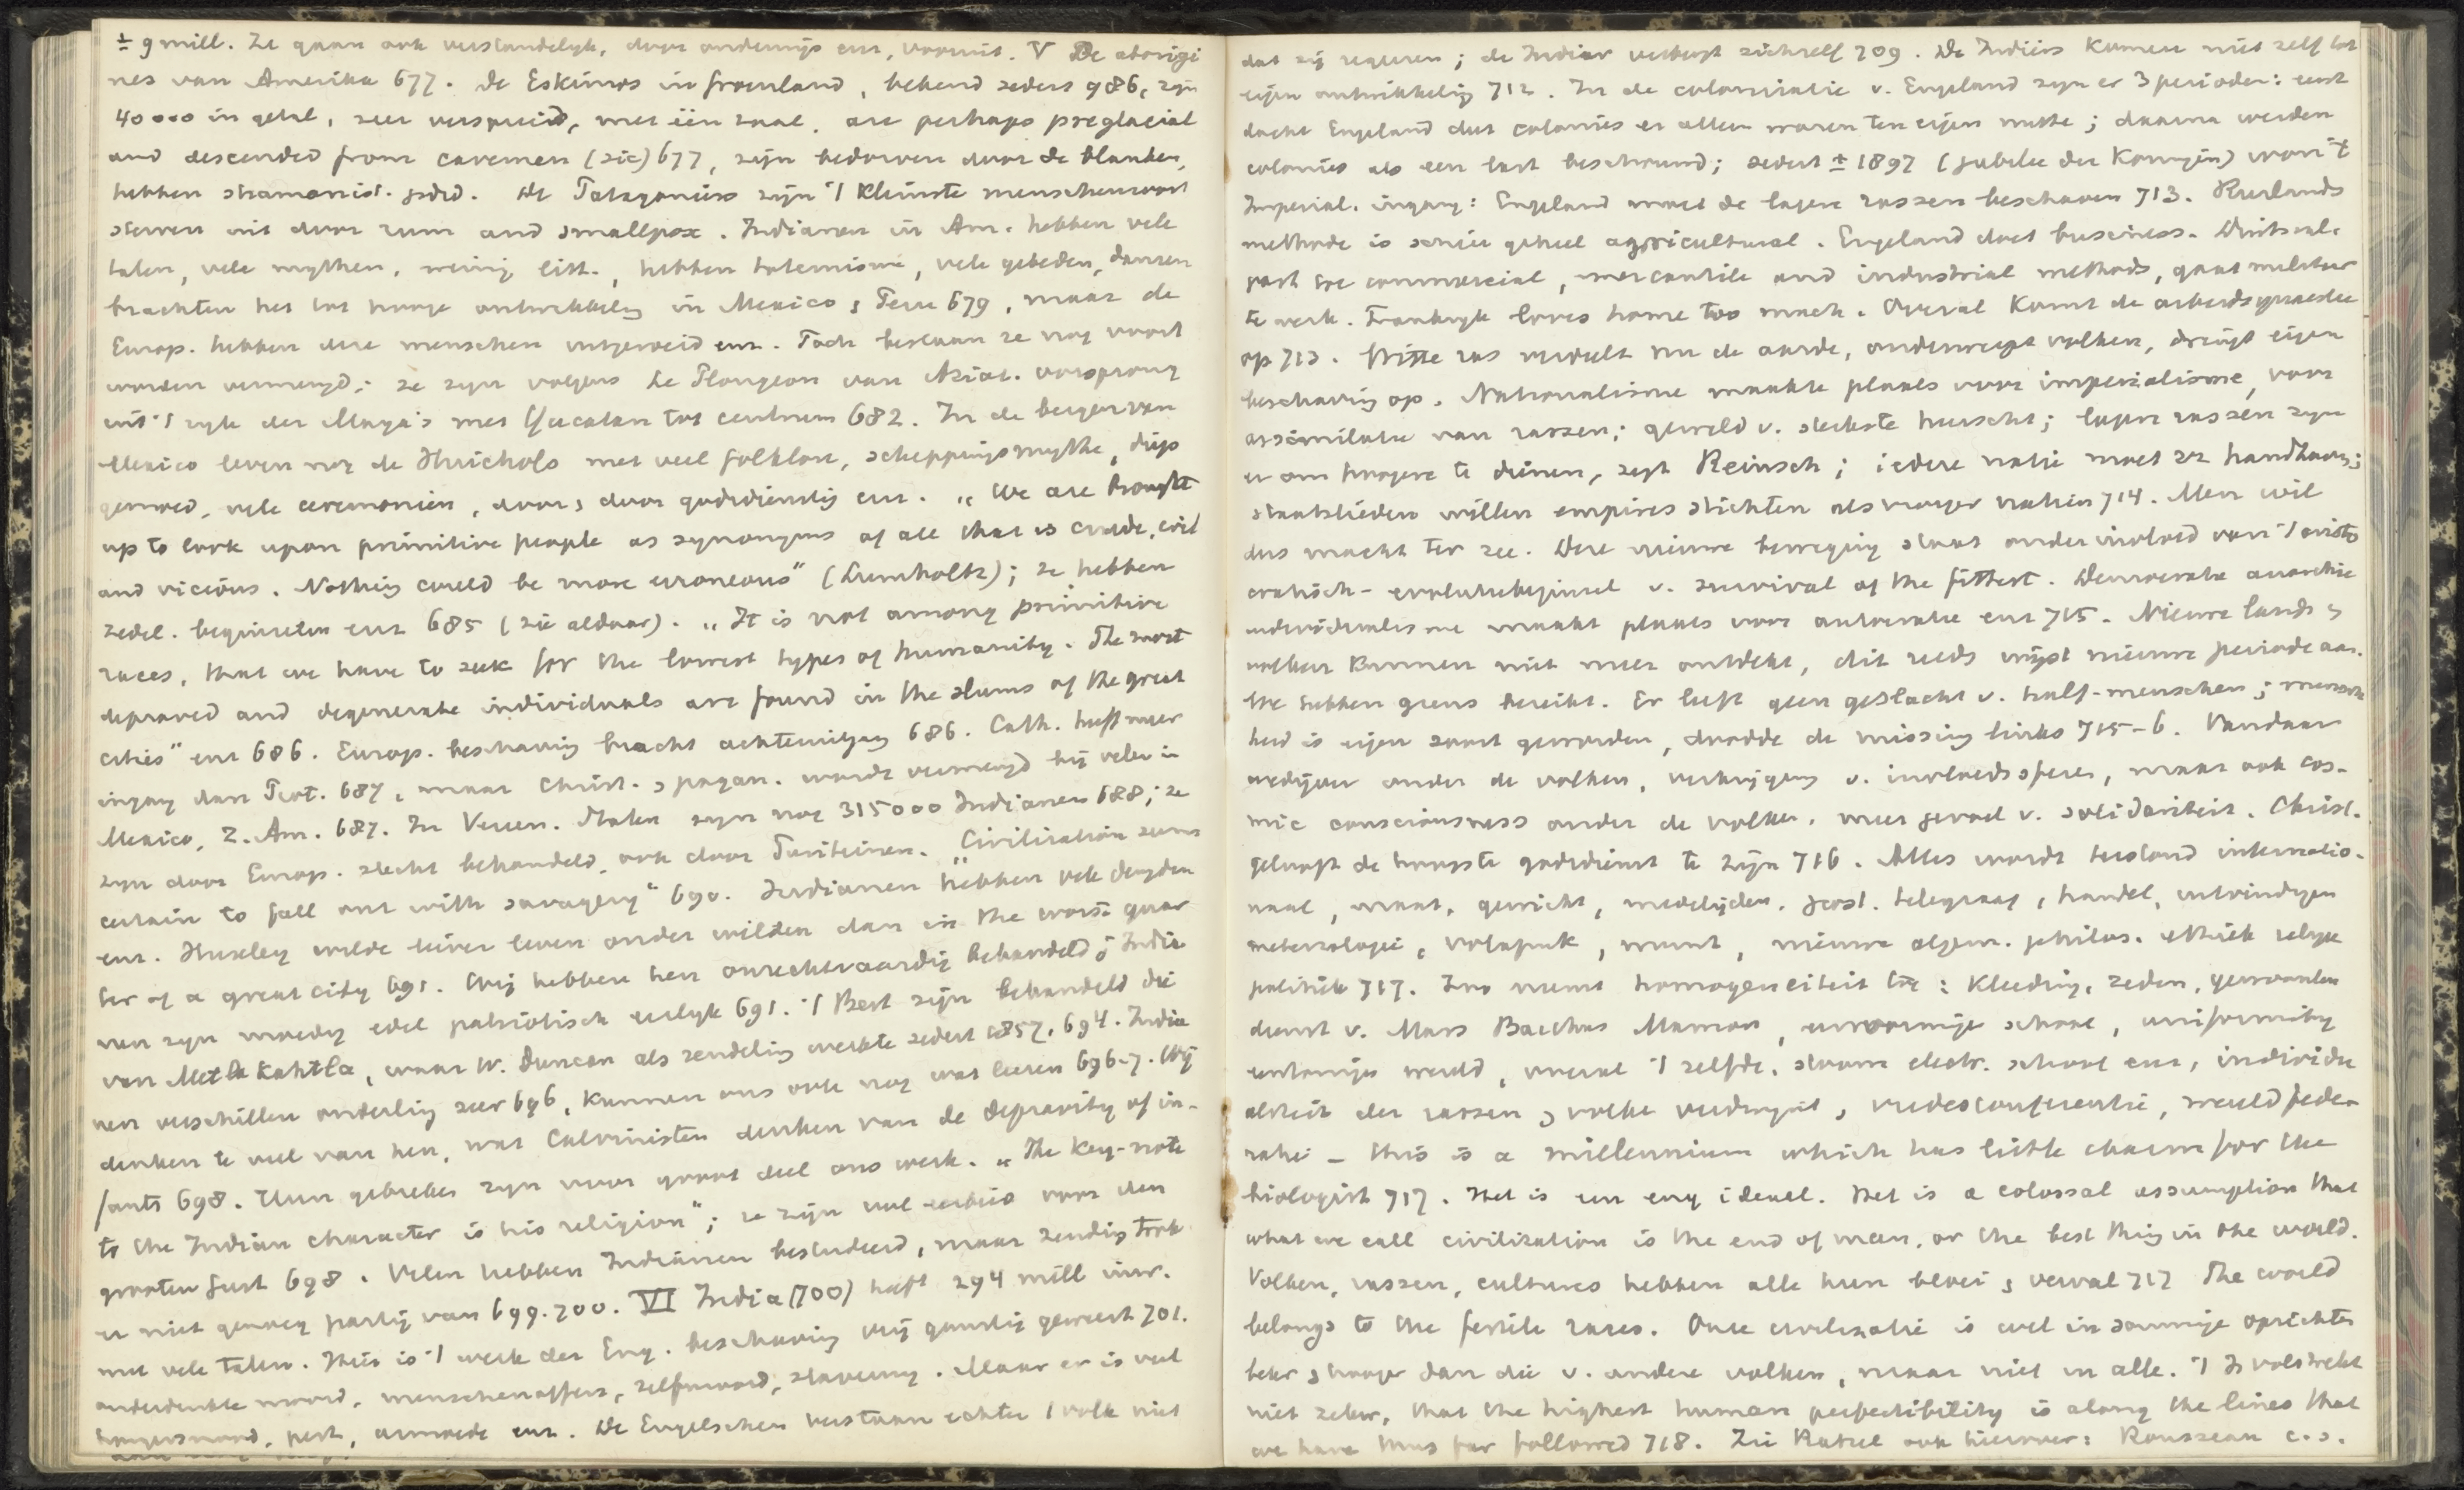 ± 9 mill. Ze gaan ook verstandelijk, door onderwijs enz., vooruit. V De aborigi
nes van Amerika 677. De Eskimos in Groenland, bekend zeders 986, zijn
40000 in getal, zeer verspreid, met één taal, are perhaps preglacial
and descended from cavemen (sic) 677, zijn bedorven door de blanken,
hebben shamanist. gsdst. De Patagoniërs zijn 't kleinste menschensoort
sterven uit door rum and smallpox. Indianen in Am. hebben vele
talen, vele mythen, weinig litt., hebben totemisme, vele gebeden, dansen
brachten het tot hooge ontwikkeling in Mexico & Peru 679, maar de
Europ. hebben deze menschen uitgeroeid enz. Toch bestaan ze nog voort
worden vermengd; ze zijn volgens Le Plongeon van Aziat. oorsprong
uit 't rijk der Maya's met Yucatan tot centrum 682. In de bergen van
Mexico leven nog de Huichols met veel folklore, scheppingsmythe, diep
gemoed, vele ceremoniën, door & door godsdienstig enz. „We are brought
up to look upon primitive people as synonyms of all that is crude, evil
and vicious. Nothing could be more erroneous" (Lumholtz); ze hebben
zedel. beginselen enz 685 (zie aldaar). „It is not among primitive
races, that we have to seek for the lowest types of humanity. The most
depraved and degenerate individuals are found in the slums of the great
cities" enz 686. Europ. beschaving bracht achteruitgang 686. Cath. heeft meer
ingang dan Prot. 687, maar Christ. & pagan. wordt vermengd bij velen in
Mexico, Z. Am. 687. In Vereen. Staten zijn nog 315000 Indianen 688; ze
zijn door Europ. slecht behandeld, ook door Puriteinen. „Civilization seems
certain to fall out with savagery" 690. Indianen hebben vele deugden
enz. Huxley wilde liever leven onder wilden dan in the worst quar
ter of a great city 691. Wij hebben hen onrechtvaardig behandeld; India
nen zijn moedig edel patriotisch eerlijk 691. 't Best zijn behandeld die
van Metlakahtla, waar W. Duncan als zendeling werkte zedert 1857, 694. India
nen verschillen onderling zeer 696, kunnen ons ook nog wat leeren 696-7. Wij
denken te veel van hen, wat Calvinisten denken van de depravity of in-
fants 698. Hun gebreken zijn voor groot deel ons werk. „The key-note
to the Indian character is his religion"; ze zijn vol eerbied voor den
grooten Geest 698. Velen hebben Indianen bestudeerd, maar zending trok
er niet genoeg partij van 699.700. VI India (700) heeft 294 mill inw.
met vele talen. Hier is 't werk der Eng. beschaving vrij gunstig geweest 701.
onderdrukte moord, menschenoffers, zelfmoord, slavernij. Maar er is veel
hongersnood, pest, armoede enz. De Engelschen verstaan echter 't volk niet
dat zij regeren; de Indiër verbergt zichzelf 709. De Indiërs komen niet zelf tot
eigen ontwikkeling 712. In de colonisatie v. Engeland zijn er 3 perioden: eerst
dacht Engeland dat colonies er alleen waren ten eigen nutte; daarna werden
colonies als een last beschouwd; zedert ± 1897 (jubilee der Koningin) won 't
Imperial. ingang: Engeland moet de lagere rassen beschaven 713. Ruslands
methode is schier geheel agricultural. Engeland doet business. Duitschl.
past toe commercial, mercantile and industrial methods, gaat militair
te werk. Frankrijk loves home too much. Overal komt de arbeidsquaestie
op 713. Witte ras verdeelt nu de aarde, onderwerpt volken, dringt eigen
beschaving op. Nationalisme maakte plaats voor imperialisme, voor
assimilatie van rassen; geweld v. sterkste heerscht; lagere rassen zijn
er om hoogere te dienen, zegt Reinsch; iedere natie moet zz handhaven;
staatslieden willen empires stichten als vroeger natiën 714. Men wil
dus macht ter zee. Deze nieuwe beweging staat onder invloed van 't aristo
cratisch-evolutiebeginsel v. survival of the fittest. Democratie anarchie
individualisme maakt plaats voor autocratie enz 715. Nieuwe lands &
volken kunnen niet meer ontdekt, dit reeds wijst nieuwe periode aan.
We hebben grens bereikt. Er leeft geen geslacht v. half-menschen; mensch
heid is eigen soort geworden, doodde de missing links 715-6. Vandaar
wedijver onder de volken, verkrijgen v. invloedssferen, maar ook cos-
mic consciousness onder de volken, meer gevoel v. solidariteit. Christ.
gelooft de hoogste godsdienst te zijn 716. Alles wordt thans internatio-
naal, maat, gewicht, medelijden, post, telegraaf, handel, uitvindingen
meteorologie, volapuk, munt, nieuwe algem. philos. ethiek religie
politiek 717. Zoo neemt homogeneiteit toe: kleeding, zeden, gewoonten
dienst v. Mars Bacchus Mamon, eenvormige school, uniformity
eentonige wereld, overal 't zelfde, stoom electr. school enz, individu
aliteit der rassen & volke verdwijnt, vredesconferentie, wereldfede-
ratie – this is a millennium which has little charm for the
biologist 717. Het is een eng ideaal. Het is a colossal assumption that
what we call civilization is the end of man, or the best thing in the world.
Volken, rassen, cultures hebben alle hun bloei & verval 717 The world
belongs to the fertile races. Onze civilizatie is wel in sommige opzichten
beter & hooger dan die v. andere volken, maar niet in alle. 't Is volstrekt
niet zeker, that the highest human perfectibility is along the lines that
we have thus far followed 718. Zie Ratzel ook hierover: Rousseau c.s.